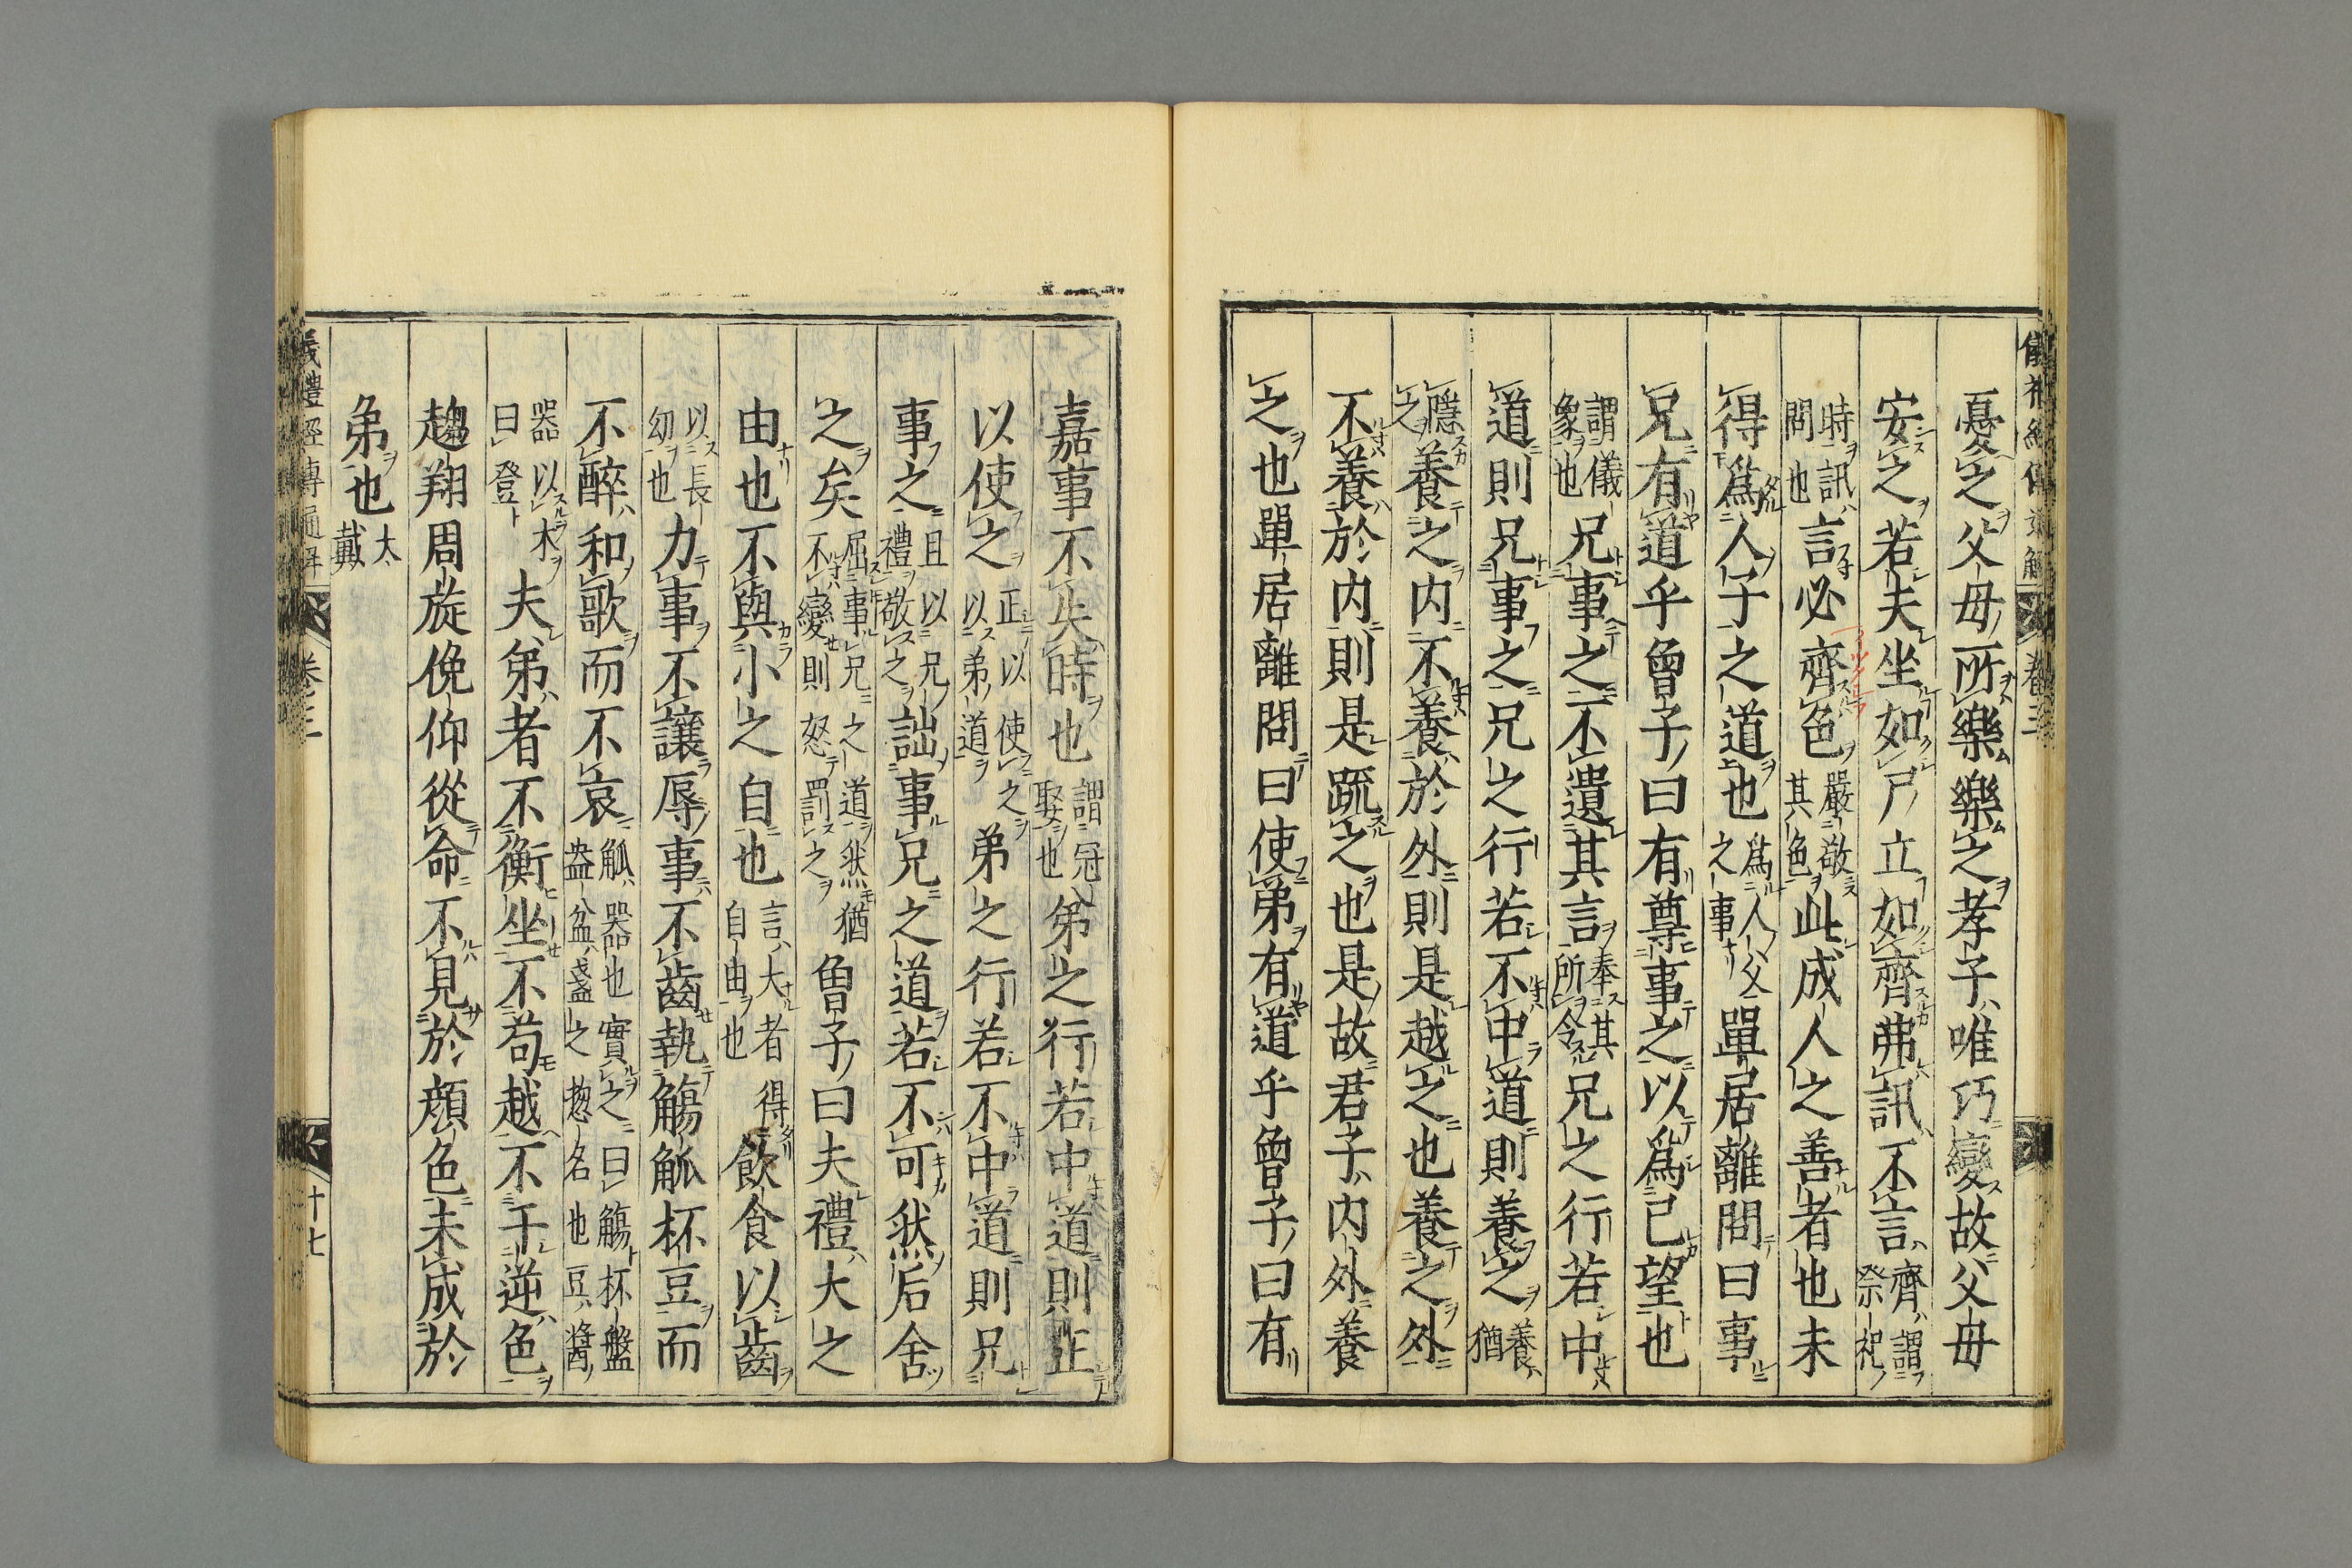 憂之父母所樂樂之孝子唯巧變故父母
安之若夫坐如尸立如齊弗訊不言齊謂祭祀
時訊問也言必齊色嚴敬其色此成人之善者也未
得爲人子之道也爲人父之事單居離問曰事
兄有道乎曾子曰有尊事之以爲己望也
謂儀象也兄事之不遺其言奉其所令兄之行若中
道則兄事之兄之行若不中道則養之養猶
隱之養之内不養於外則是越之也養之外
不養於内則是疏之也是故君子内外養
之也單居離問曰使弟有道乎曾子曰有
嘉事不失時也謂冠娶也弟之行若中道則正
以使之正以使之以弟道弟之行若不中道則兄
事之且以兄禮敬之詘事兄之道若不可然后舍
之矣屈事兄之道然猶不變則怒罰之曾子曰夫禮大之
由也不與小之自也言大者得自由也飲食以齒
以長幼也力事不讓辱事不齒執觴觚杯豆而
不醉和歌而不哀觚器也實之曰觴杯盤盎盆盞之惣名也豆醬
器以木曰登夫弟者不衡坐不苟越不干逆色
趨翔周旋俛仰從命不見於顔色未成於
弟也大戴
儀禮經傳通解
卷三
十七